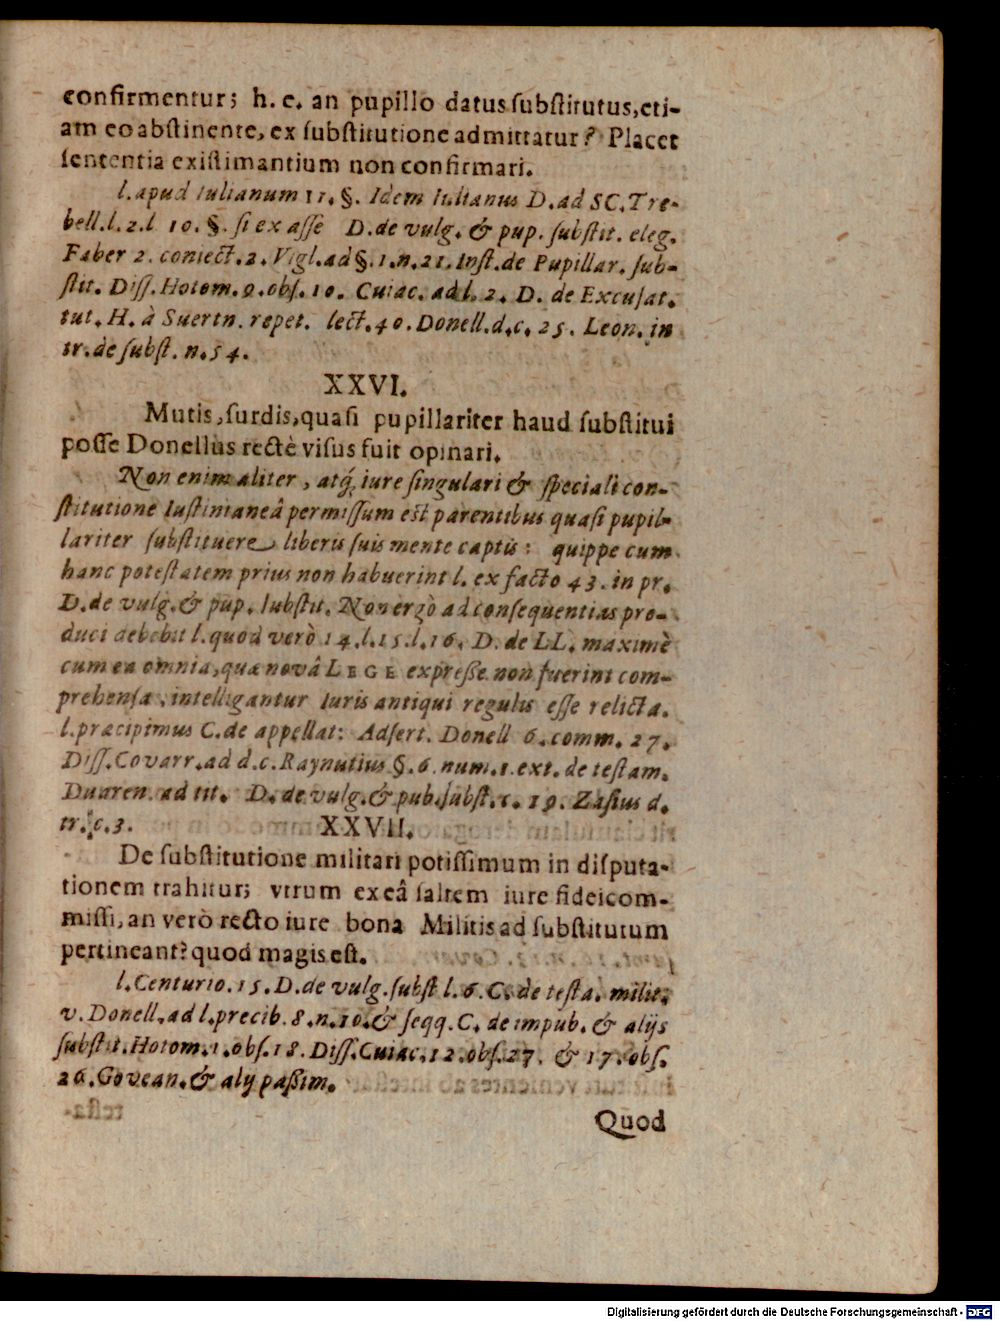 confirmentur; h. e. an pupillo datus ſubſtitutus, eti-
am eo abſtinente, ex ſubſtitutione admittatur? Placet
ſententia exiſtimantium non confirmari.
l. apud Iulianum 11. §. Idem Iulianus D. ad SC. Tre-
bell. l. 2. l 10. §. ſi ex aſſe D. de vulg. & pup. ſubſtit. eleg.
Faber 2. coniect. 2. Vigl. ad §. 1. n. 21. Inſt. de Pupillar. ſub-
ſtit. Diſſ. Hotom. 9. obſ. 10. Cuiac. ad l. 2. D. de Excuſat.
tut. H. à Suertn. repet. lect. 40. Donell. d. c. 25. Leon. in
tr. de ſubſt. n. 54.
XXVI.
Mutis, ſurdis, quaſi pupillariter haud ſubſtitui
poſſe Donellus rectè viſus fuit opinari.
Non enim aliter, atq; iure ſingulari & ſpeciali con-
ſtitutione Iuſtinianeâ permiſſum eſt parentibus quaſi pupil-
lariter ſubſtituere liberis ſuis mente captis: quippe cum
hanc poteſtatem prius non habuerint l. ex facto 43. in pr.
D. de vulg. & pup. ſubſtit. Non ergò ad conſequentias pro-
duci debebit l. quod verò 14. l. 15. l. 16. D. de LL. maximè
cum ea omnia, quæ novâ LEGE expreſſe non fuerint com-
prehenſa, intelligantur Iuris antiqui regulis eſſe relicta.
l. præcipimus C. de appellat: Adſert. Donell 6. comm. 27.
Diſſ. Covarr. ad d. c. Raynutius §. 6. num. 1. ext. de teſtam.
Duaren. ad tit. D. de vulg. & pub. ſubſt. c. 19. Zaſius d.
tr. c. 3. XXVII.
De ſubſtitutione militari potiſſimum in diſputa-
tionem trahitur; vtrum ex eâ ſaltem iure fideicom-
miſſi, an verò recto iure bona Militis ad ſubſtitutum
pertineant? quod magis eſt.
l. Centurio. 15. D. de vulg. ſubſt l. 6. C. de teſta. milit.
v. Donell, ad l. precib. 8. n. 10. & ſeqq. C. de impub. & alijs
ſubſtit. Hotom. 1. obſ. 18. Diſſ. Cuiac. 12. obſ. 27. & 17. obſ.
26. Govean. & alij paßim.
Quod
Digitalisierung gefördert durch die Deutsche Forschungsgemeinschaft - DFG